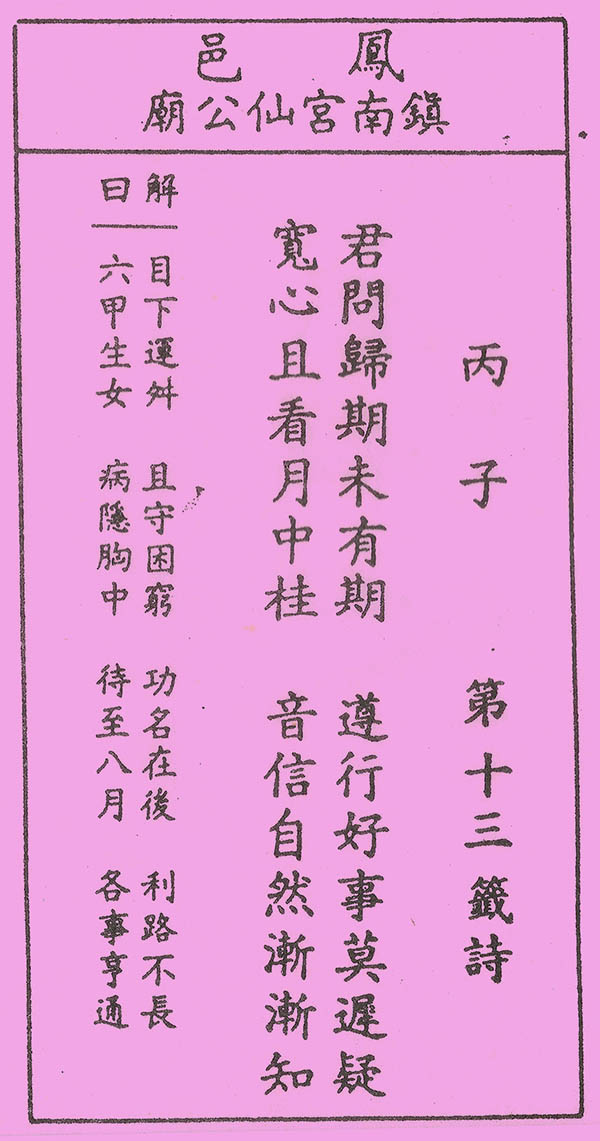 鳳邑
鎮南宮仙公廟
丙子 第十三籤詩
君問歸期未有期 遵行好事莫遲疑
寬心且看月中桂 音信自然漸漸知
解曰
目下運舛 且守困窮 功名在後 利路不長
六甲生女 病隱胸中 待至八月 各事亨通